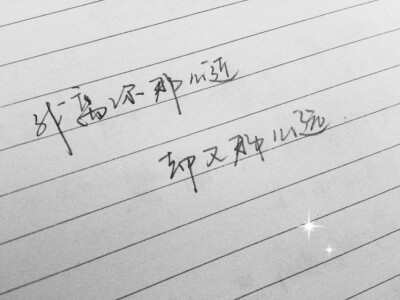 我离你那么近
却又那么远.